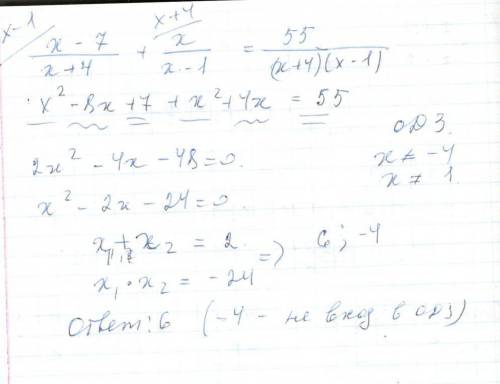 x-1 x+4
(x-7)/(x+4) + x/(x-1) = 55/((x+4)(x-1))
x² - 8x + 7 + x² + 4x = 55
ОДЗ.
2x² - 4x - 48 = 0.
x ≠ -4
x ≠ 1.
x² - 2x - 24 = 0.
x₁ + x₂ = 2
x₁ · x₂ = -24 => 6; -4
Ответ: 6 (-4 - не вход в ОДЗ)